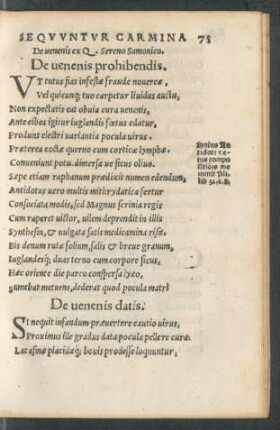 SEQVVNTVR CARMINA 75
De uenenis ex Q. Sereno Samonico.
De uenenis prohibendis.
VT tutus fias infestæ fraude nouercæ,
Vel quicunque tuo carpetur liuidus auctu,
Non expectatis est obuia cura uenenis,
Ante cibos igitur iuglandis fœtus edatur,
Produnt electri variantia pocula virus.
Præterea coctæ querno cum cortice lymphæ
Conueniunt potu. dimersa ue ficus oliuo.
Sæpe etiam raphanum prædixit numen edendum,
Antidotus uero multis mithrydatica fertur
Consociata modis, sed Magnus scrinia regis
Cum raperet uictor, uilem deprendit in illis
Synthesin, & uulgata satis medicamina risit.
Bis denum rutæ folium, salis & breue granum,
Iuglandesq; duas terno cum corpore ficus,
Hæc oriente die parco conspersa lyæo,
sumebat metuens, dederat quod pocula matri
De uenenis datis.
SI nequit infandum præuertere cautio uirus,
Proximus ille gradus data pocula pellere curæ.
Lac asinæ placidæq; bouis prodesse loquuntur.